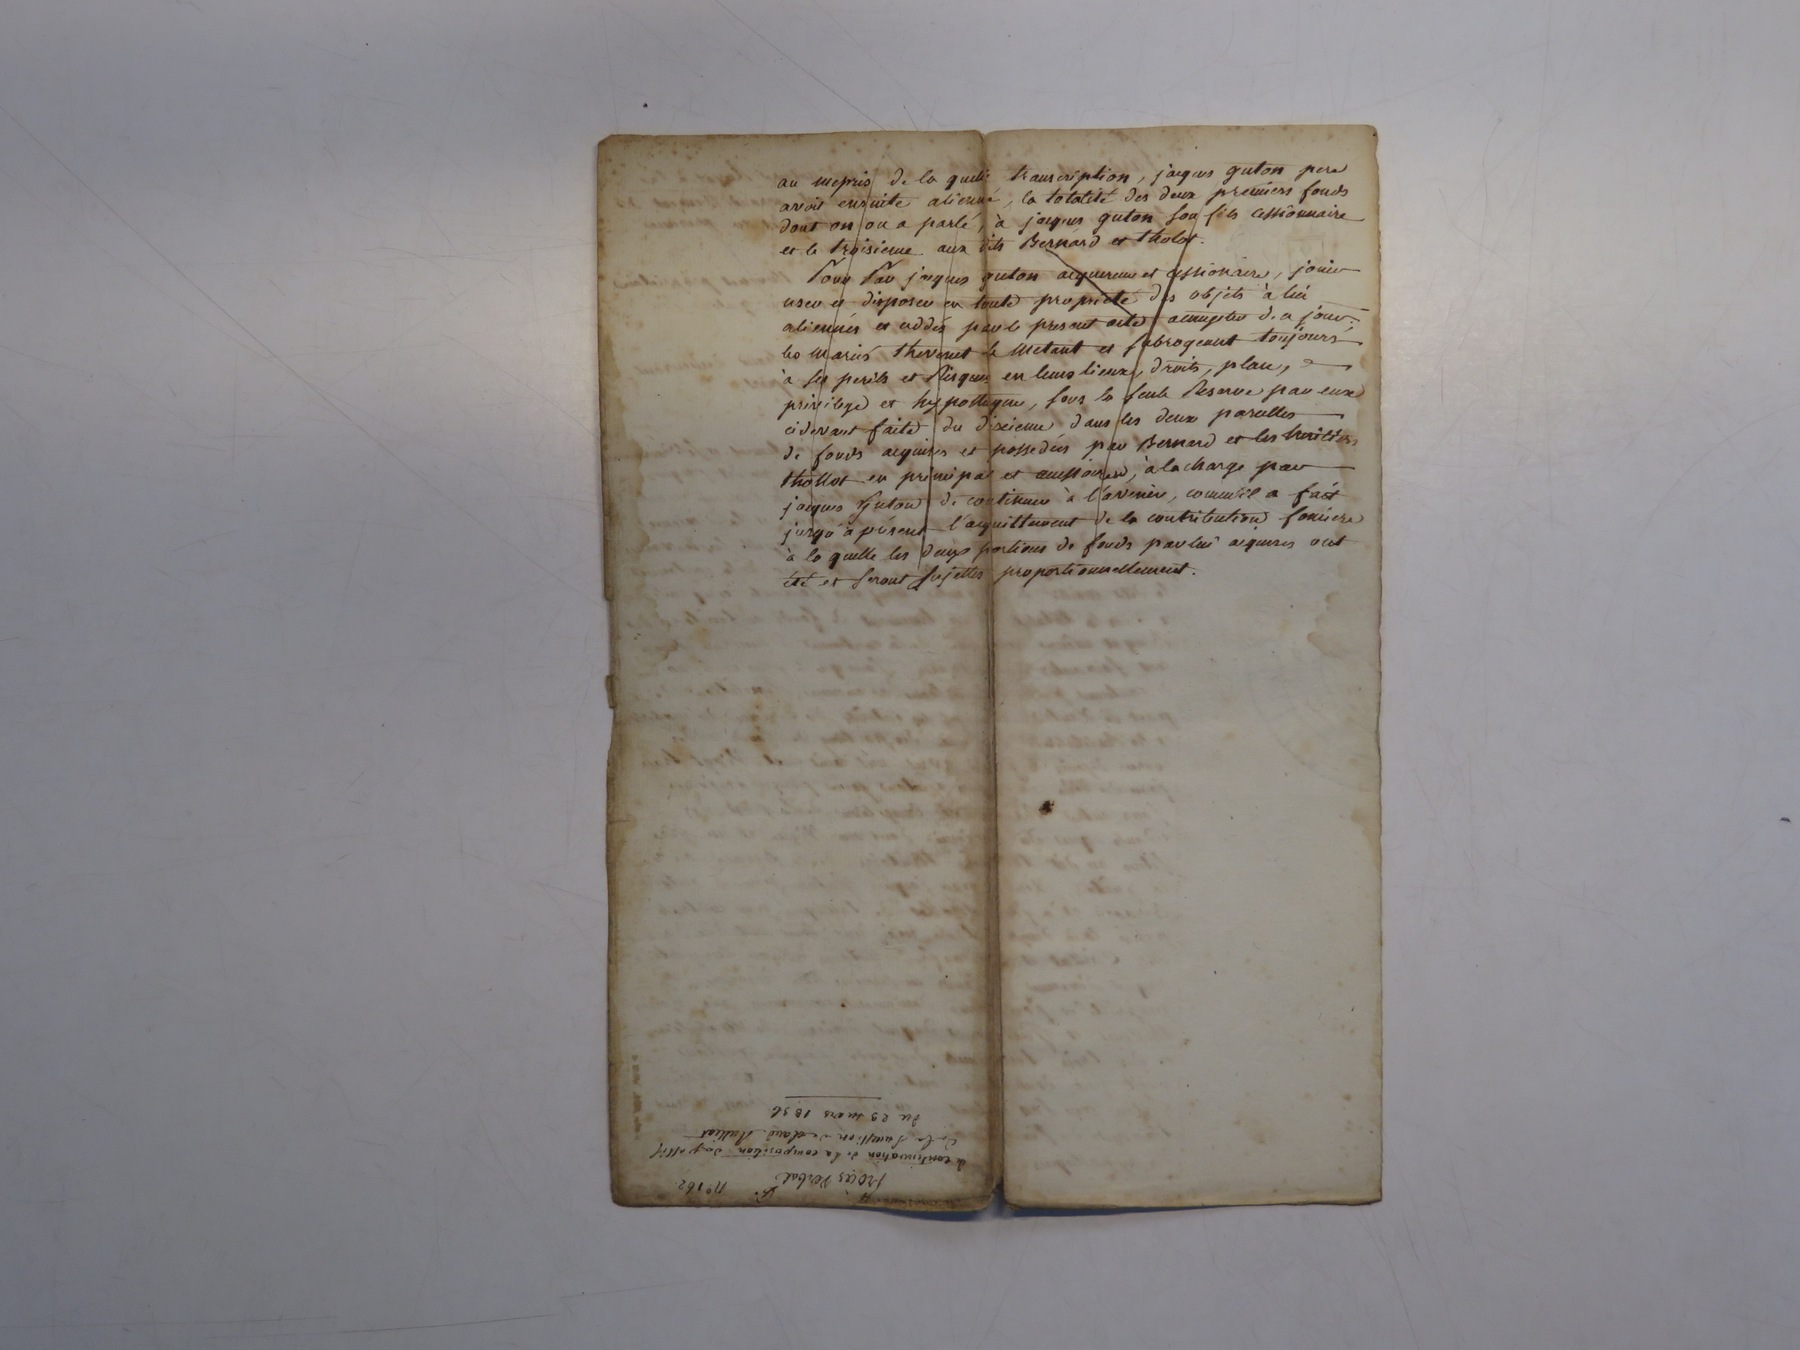 au mepris de la quelle transcription, jacques guton pere
avoit ensuite alienné, la totalité des deux premiers fonds
dont on on a parlé, à jacques guton son fils cessionnaire
et le troisieme aux dits Bernard et tholot.
Pour Par jacques guton acquereur et cessionaire, jouir
user et disposer en toute proprieté des objets à lui
aliennés et cédés par le present acte acompter de ce jour,
les mariés thevenet le Metant et subrogeant toujours
à ses perils et Risques en leurs lieux, droits, place,
privilege et hypothegue, sous la seule Reserve par eux
cidevant faite du dixieme dans les deux parcelles
de fonds acquises et possedées par Bernard et les heritiers
thollot en principal et accessoires, à la charge par
jacques Guton de continuer à l'avenir, comme il a fait
jusqu'à présent l'acquittement de la contribution fonciere
à la quelle les deux portions de fonds par lui acquises ont
été et seront sujettes proportionnellement.
N° 162
Procès Verbal
de continuation de la composition du passif
de la succession de claud
du 29 mars 1836